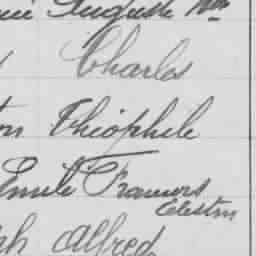 Auguste Wm
Charles
Théophile
Emile Francois
Celestin
Alfred